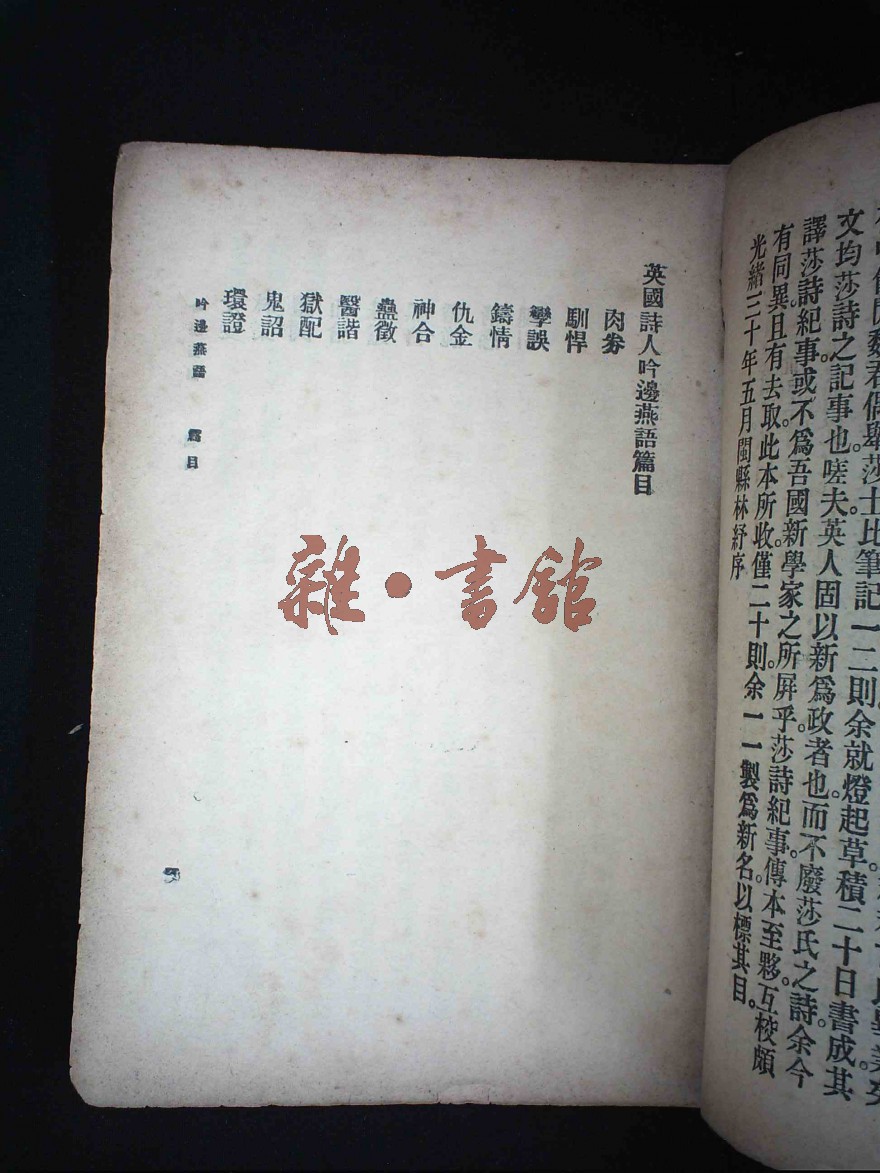 文均莎詩之記事也嗟夫英人固以新爲政者也而不廢莎氏之詩。余今
譯莎詩紀事或不爲吾國新學家之所屏乎莎詩紀事。傳本至夥。互校頗
有同異且有去取此本所收僅二十則余一一製爲新名以標其目。
光緒三十年五月閩縣林紓序
英國詩人吟邊燕語篇目
肉券
馴悍
孿誤
鑄情
仇金
神合
蠱徵
醫諧
獄配
鬼詔
環證
吟邊燕語 篇目
雜·書館